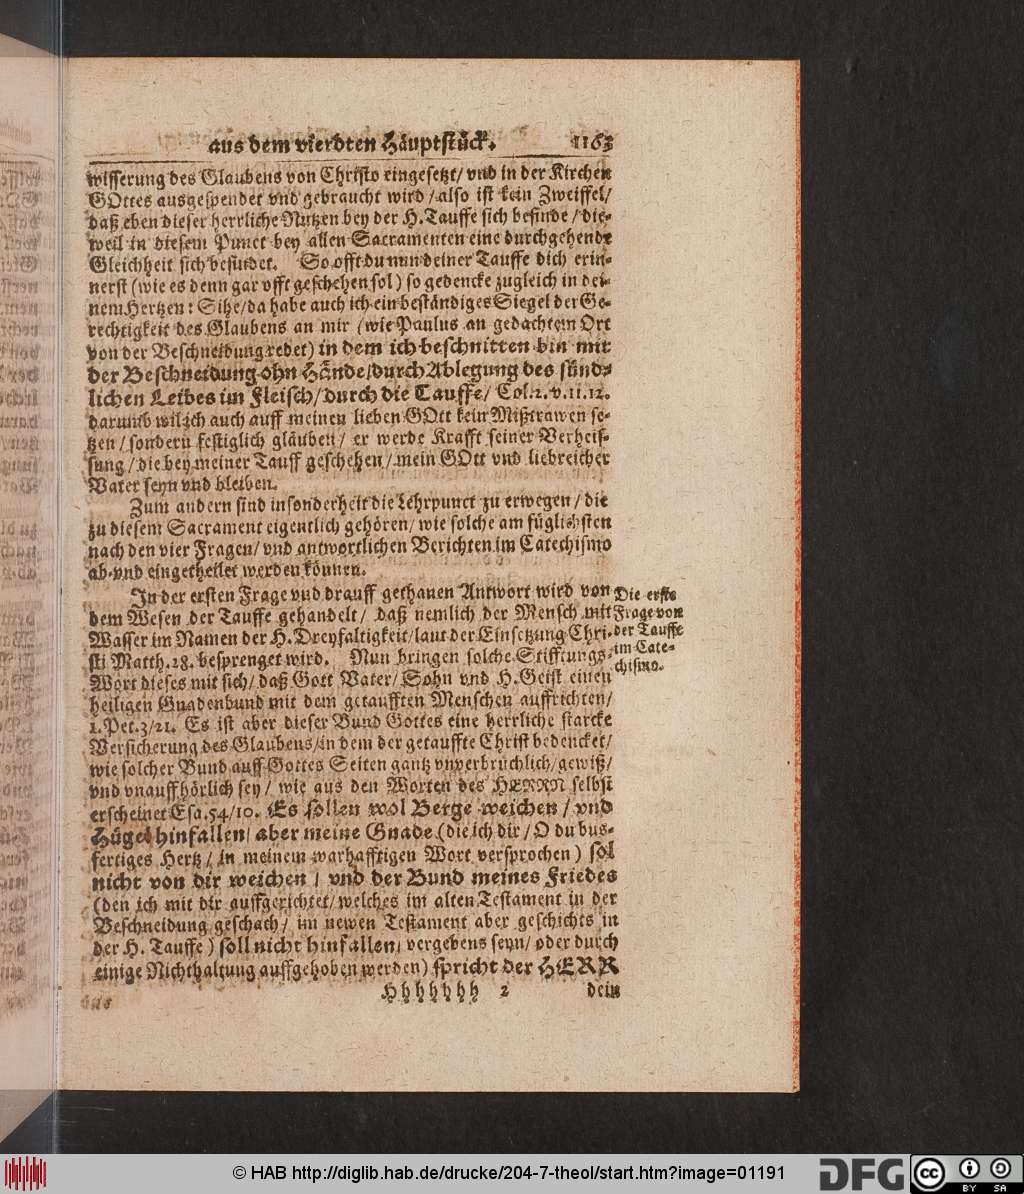 aus dem vierdten Häuptstück. 1163
wisserung des Glaubens von Christo eingesetzt/ vnd in der Kirchen
GOttes ausgespendet vnd gebraucht wird / also ist kein Zweiffel/
daß eben dieser herrliche Nutzen bey der H. Tauffe sich befinde / die-
weil in diesem Punct bey allen Sacramenten eine durchgehende
Gleichheit sich befindet. So offt du nun deiner Tauffe dich erin-
nerst (wie es denn gar offt geschehen sol) so gedencke zugleich in dei-
nem Hertzen: Sihe/ da habe auch ich ein beständiges Siegel der Ge-
rechtigkeit des Glaubens an mir (wie Paulus an gedachtem Ort
von der Beschneidung redet) in dem ich beschnitten bin mit
der Beschneidung ohn Hände/ durch Ablegung des sünd-
lichen Leibes im Fleisch/ durch die Tauffe/ Col.2.v.11.12.
darumb wil ich auch auff meinen lieben GOtt kein Mißtrawen se-
tzen / sondern festiglich gläuben / er werde Krafft seiner Verheis-
sung / die bey meiner Tauff geschehen / mein GOtt vnd liebreicher
Vater seyn vnd bleiben.
Zum andern sind insonderheit die Lehrpunct zu erwegen / die
zu diesem Sacrament eigentlich gehören/ wie solche am füglichsten
nach den vier Fragen/ vnd antwortlichen Berichten im Catechismo
ab- vnd eingetheilet werden können.
In der ersten Frage vnd drauff gethanen Antwort wird von
dem Wesen der Tauffe gehandelt / daß nemlich der Mensch mit
Wasser im Namen der H. Dreyfaltigkeit/ laut der Einsetzung Chri-
sti Matth. 28. besprenget wird. Nun bringen solche Stifftungs-
Wort dieses mit sich/ daß Gott Vater/ Sohn vnd H. Geist einen
heiligen Gnadenbund mit dem getaufften Menschen auffrichten/
1. Pet. 3/21. Es ist aber dieser Bund Gottes eine herrliche starcke
Versicherung des Glaubens/ in dem der getauffte Christ bedencket/
wie solcher Bund auff Gottes Seiten gantz vnverbrüchlich/ gewiß/
vnd vnauffhörlich sey / wie aus den Worten des HERRN selbst
erscheinet Esa. 54/10. Es sollen wol Berge weichen / vnd
Hügel hinfallen/ aber meine Gnade (die ich dir / O du bus-
fertiges Hertz / in meinem warhafftigen Wort versprochen) sol
nicht von dir weichen / vnd der Bund meines Friedes
(den ich mit dir auffgerichtet/ welches im alten Testament in der
Beschneidung geschach / im newen Testament aber geschichts in
der H. Tauffe) soll nicht hinfallen/ vergebens seyn/ oder durch
einige Nichthaltung auffgehoben werden) spricht der HERR
Hhhhhhh 2 dein
Die erste
Frage von
der Tauffe
im Cate-
chismo.
© HAB http://diglib.hab.de/drucke/204-7-theol/start.htm?image=01191
DFG
cc BY SA